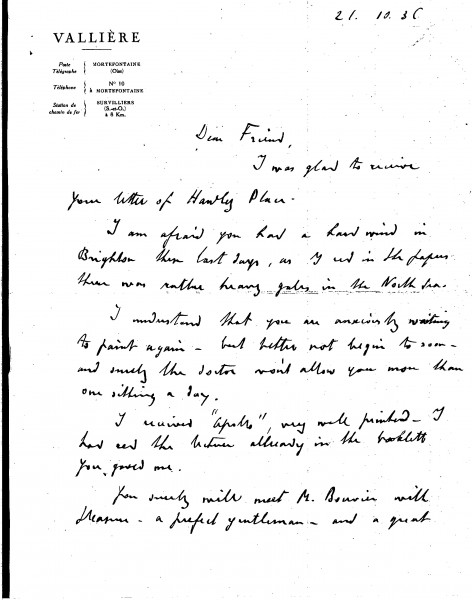 21. 10. 36
VALLIÈRE
Poste
Télégraphe
MORTEFONTAINE
(Oise)
Téléphone
N° 10
à MORTEFONTAINE
Station de
chemin de fer
SURVILLIERS
(S.-et-O.)
à 8 Km.
Dear Friend,
I was glad to receive
your letter of Handly Place.
I am afraid you had a hard wind in
Brighton these last days, as I red in the papers
there was rather heavy gales in the North Sea.
I understand that you are anxiously waiting
to paint again – but better not begin to soon –
and surely the doctor won't allow you more than
one sitting a day.
I received "Apollo", very well printed – I
had red the lecture allready in the booklett
you gaved me.
You surely will meet M. Bouvier with
pleasure – a prefect gentleman – and a great